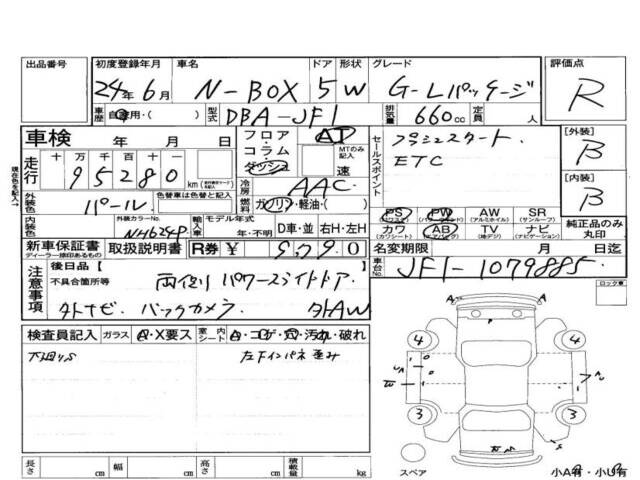 出品番号 初度登録年月 車名 ドア 形状 グレード 評価点
24年 6月 N-BOX 5 W G-Lパッケージ R
車歴 自家用・( ) 型式 DBA-JF1 排気量 660cc 定員 人
車検 年 月 日
フロア・コラム・ダッシュ AT MTのみ記入 速
セールスポイント プッシュスタート.
ETC
[外装] B
[内装] B
現在色を記入→
走行 十 万 千 百 十 一
95280 km
冷房 AAC
外装色 パール. 色替車は色替と記入
燃料 ガソリン・軽油・( )
PS (パワステ) PW AW (アルミホイル) SR (サンルーフ)
カワ (カワシート) AB (エアバッグ) TV (地デジ) ナビ (ナビゲーション)
純正品のみ丸印
内装色 外装カラーNo. NH624P 輸入車 モデル年式 年・不明 D車・並 右H・左H
新車保証書 ディーラー捺印あるもの 取扱説明書 R券 ¥ 9790
名変期限 月 日迄
車台No. JF1-1079885.
注意事項 後日品【 】
不具合箇所等 両側パワースライドドア.
外ナビ. バックカメラ. 外AW
ロック車
検査員記入 ガラス A・X要ス 室内シート A・コゲ・穴・汚れ・破れ
下廻りS 左下インパネ歪み
A A
P
4 4
3 3
スペア 小A有・小U有
長さ cm 幅 cm 高さ cm 積載量 kg